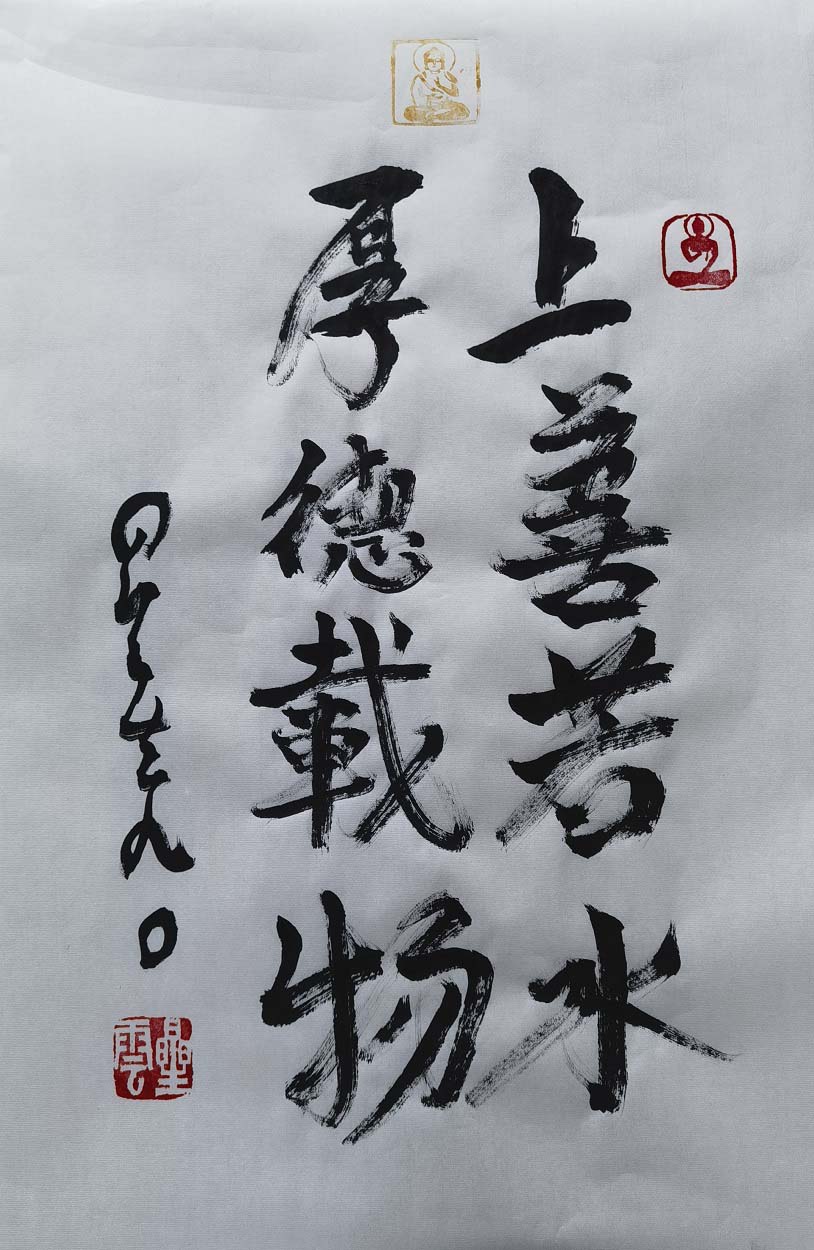 上善若水
厚德載物
星雲